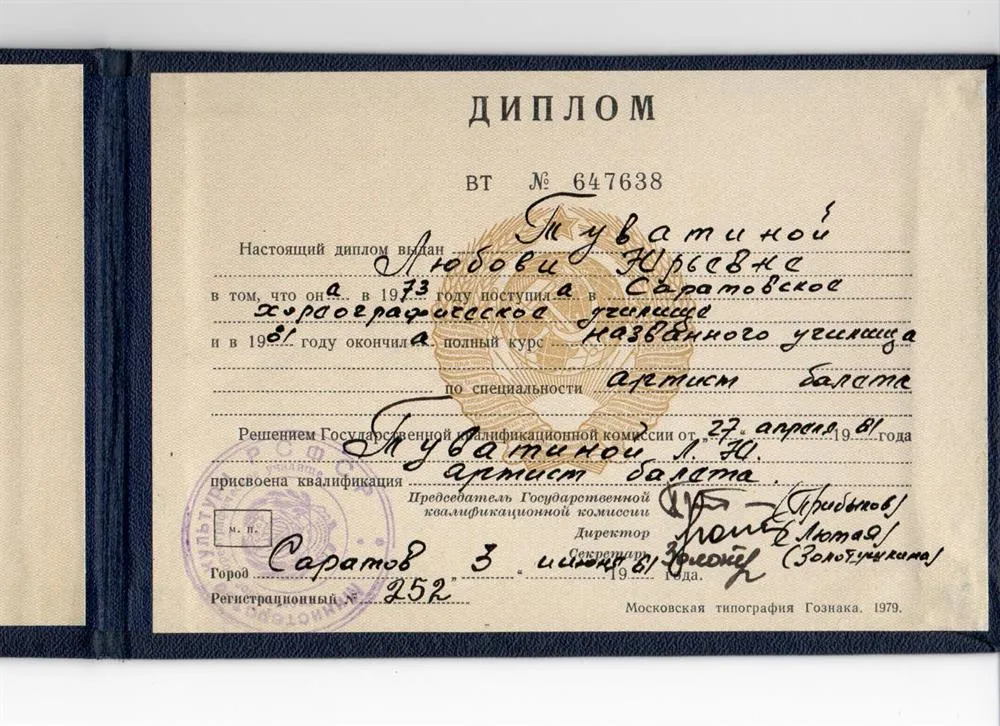 ДИПЛОМ
ВТ № 647638
Настоящий диплом выдан Туватиной
Любови Юрьевне
в том, что она в 1973 году поступила в Саратовское
хореографическое училище
и в 1981 году окончила полный курс названного училища
по специальности артист балета
Решением Государственной квалификационной комиссии от „27" апреля 1981 года
Туватиной Л. Ю.
присвоена квалификация артист балета.
Председатель Государственной
квалификационной комиссии (Прибылов)
Директор (Лютая)
Секретарь (Золотушкина)
м. п.
Город Саратов „3" июня 1981 года.
Регистрационный № 252
Московская типография Гознака. 1979.
РСФСР